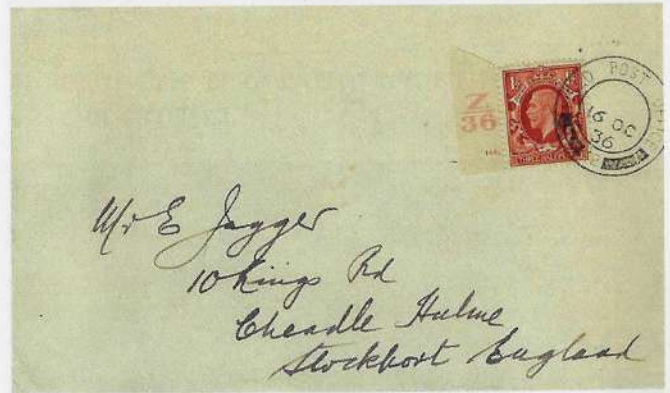 Z
36
POST OFFICE
16 OC
36
Mr E Jagger
10 Kings Rd
Cheadle Hulme
Stockport England